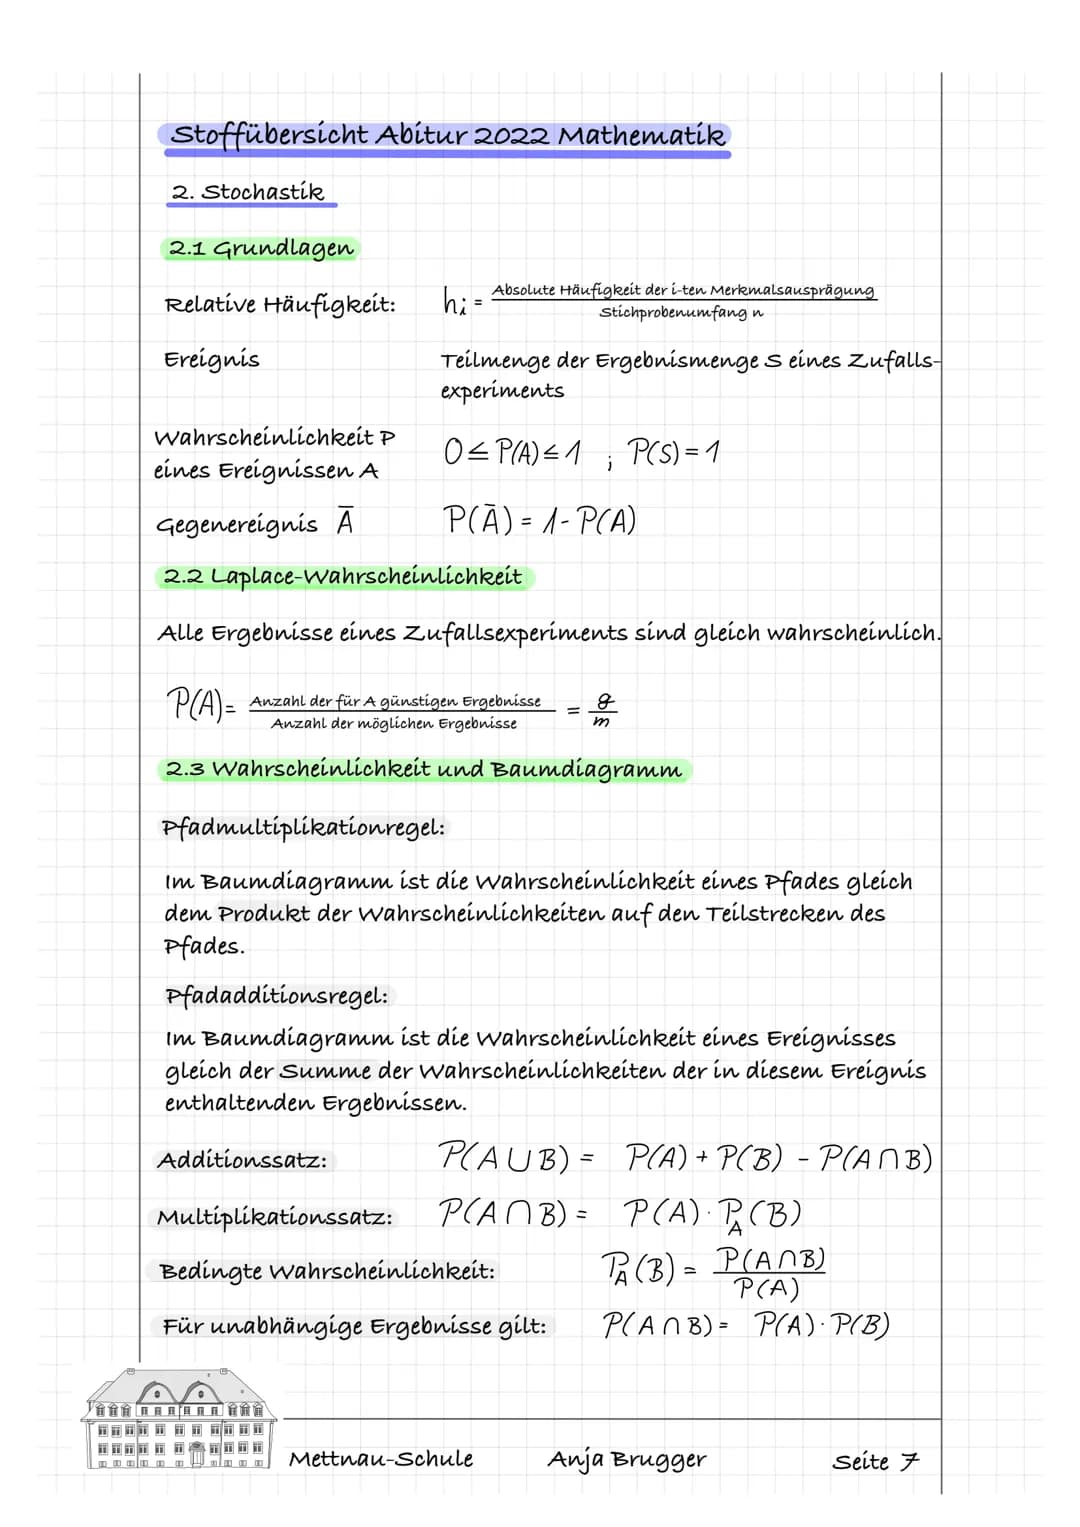 Stoffübersicht Abitur 2022 Mathematik
2. Stochastik
2.1 Grundlagen
Relative Häufigkeit: hᵢ = Absolute Häufigkeit der i-ten Merkmalsausprägung / Stichprobenumfang n
Ereignis Teilmenge der Ergebnismenge S eines Zufalls-
experiments
Wahrscheinlichkeit P
eines Ereignissen A 0 ≤ P(A) ≤ 1 ; P(S) = 1
Gegenereignis Ā P(Ā) = 1 - P(A)
2.2 Laplace-Wahrscheinlichkeit
Alle Ergebnisse eines Zufallsexperiments sind gleich wahrscheinlich.
P(A) = Anzahl der für A günstigen Ergebnisse / Anzahl der möglichen Ergebnisse = g/m
2.3 Wahrscheinlichkeit und Baumdiagramm
Pfadmultiplikationregel:
Im Baumdiagramm ist die Wahrscheinlichkeit eines Pfades gleich
dem Produkt der Wahrscheinlichkeiten auf den Teilstrecken des
Pfades.
Pfadadditionsregel:
Im Baumdiagramm ist die Wahrscheinlichkeit eines Ereignisses
gleich der Summe der Wahrscheinlichkeiten der in diesem Ereignis
enthaltenden Ergebnissen.
Additionssatz: P(A∪B) = P(A) + P(B) - P(A∩B)
Multiplikationssatz: P(A∩B) = P(A) · P_A(B)
Bedingte Wahrscheinlichkeit: P_A(B) = P(A∩B) / P(A)
Für unabhängige Ergebnisse gilt: P(A∩B) = P(A) · P(B)
Mettnau-Schule Anja Brugger Seite 7